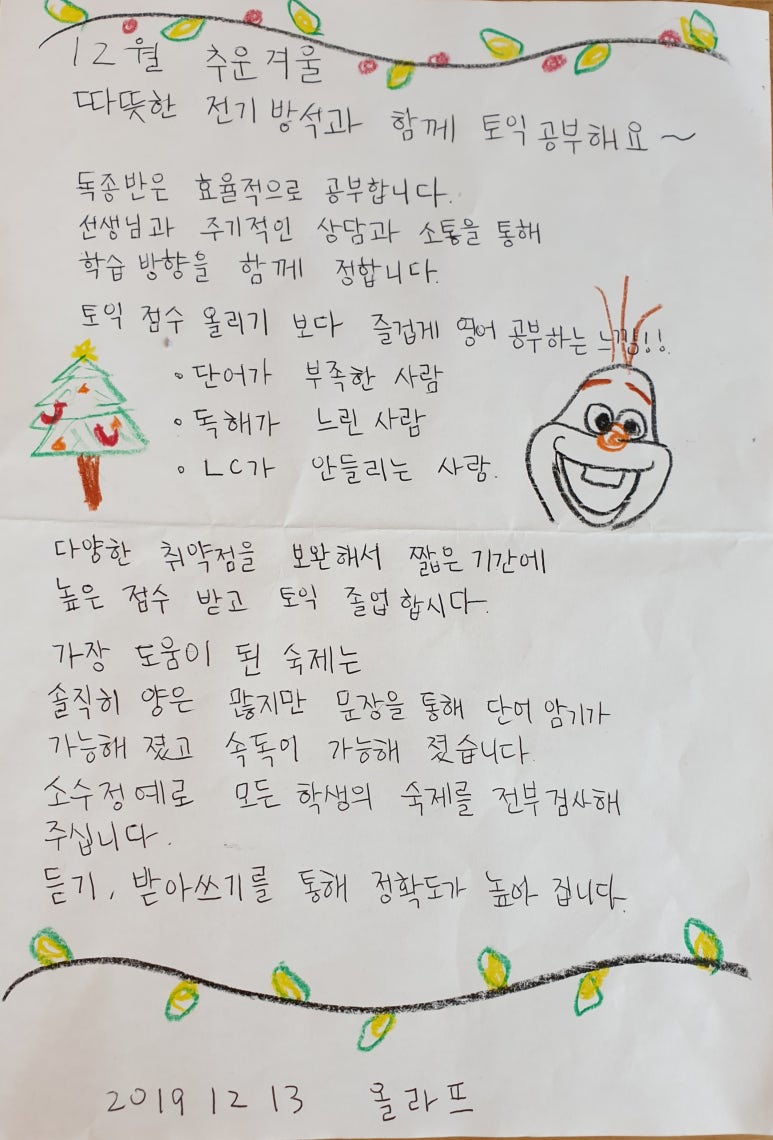 12월 추운겨울
따뜻한 전기방석과 함께 토익 공부해요~
독종반은 효율적으로 공부합니다.
선생님과 주기적인 상담과 소통을 통해
학습 방향을 함께 정합니다.
토익 점수 올리기 보다 즐겁게 영어 공부하는 느낌!!
◦단어가 부족한 사람
◦독해가 느린 사람
◦LC가 안들리는 사람.
다양한 취약점을 보완해서 짧은 기간에
높은 점수 받고 토익 졸업 합시다.
가장 도움이 된 숙제는
솔직히 양은 많지만 문장을 통해 단어 암기가
가능해 졌고 속독이 가능해 졌습니다.
소수정예로 모든 학생의 숙제를 전부검사해
주십니다.
듣기, 받아쓰기를 통해 정확도가 높아 집니다.
2019 12 13 올라프